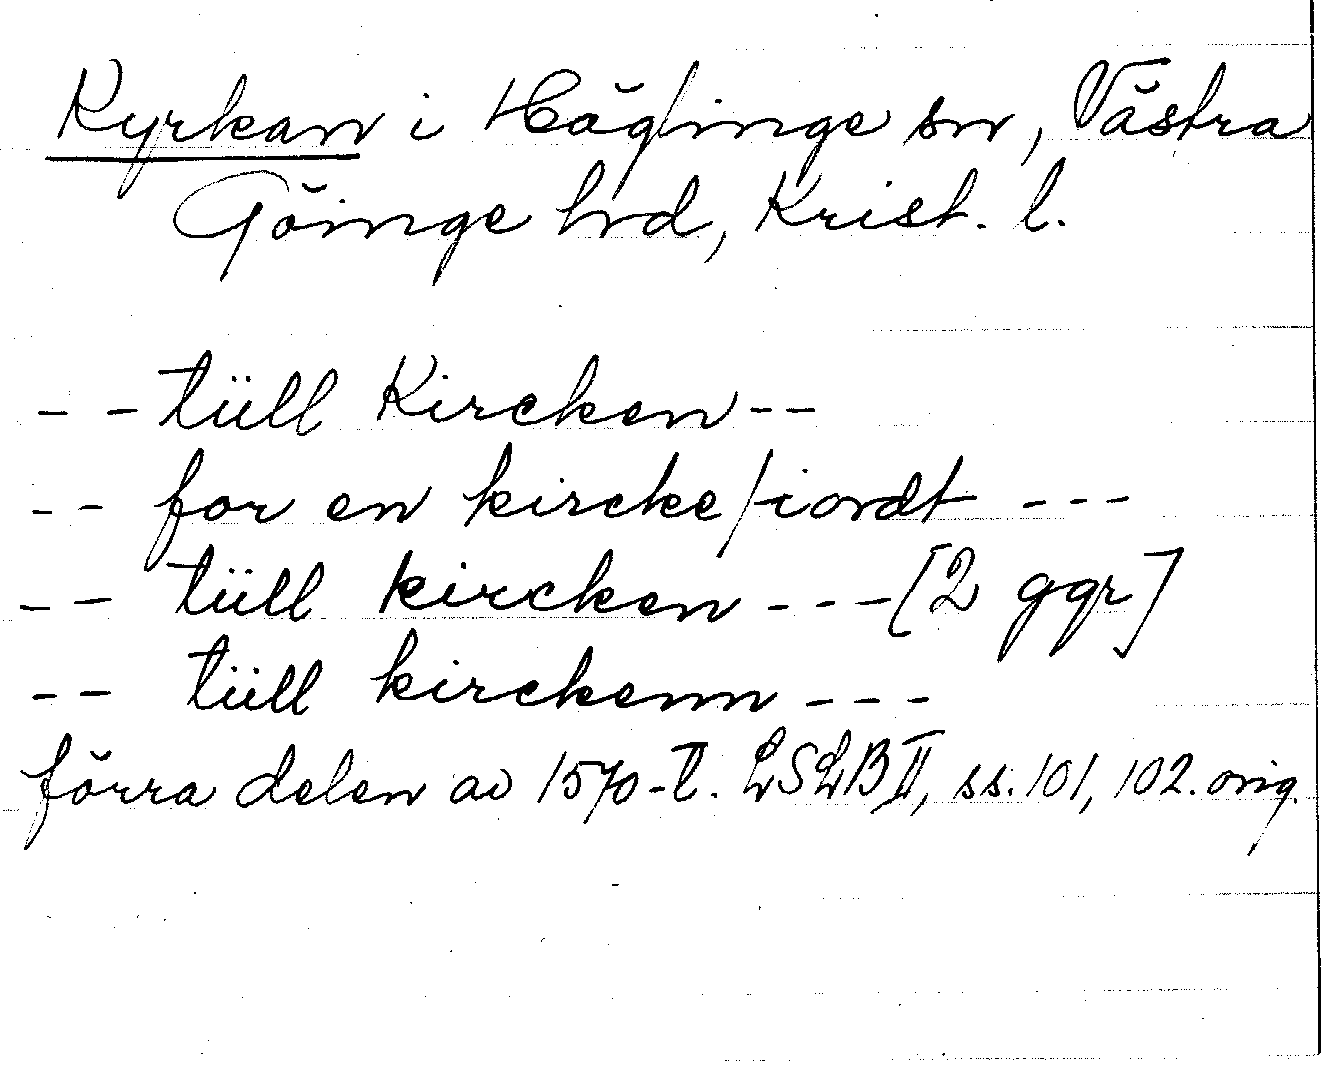 Kyrkan i Häglinge sn, Västra
Göinge hrd, Krist. l.
- - tüll Kircken - -
- - for en kircke/iordt - - -
- - tüll kircken - - - [2 ggr]
- - tüll kirckenn - - -
förra delen av 1570-t. LSLB II, ss. 101, 102. orig.